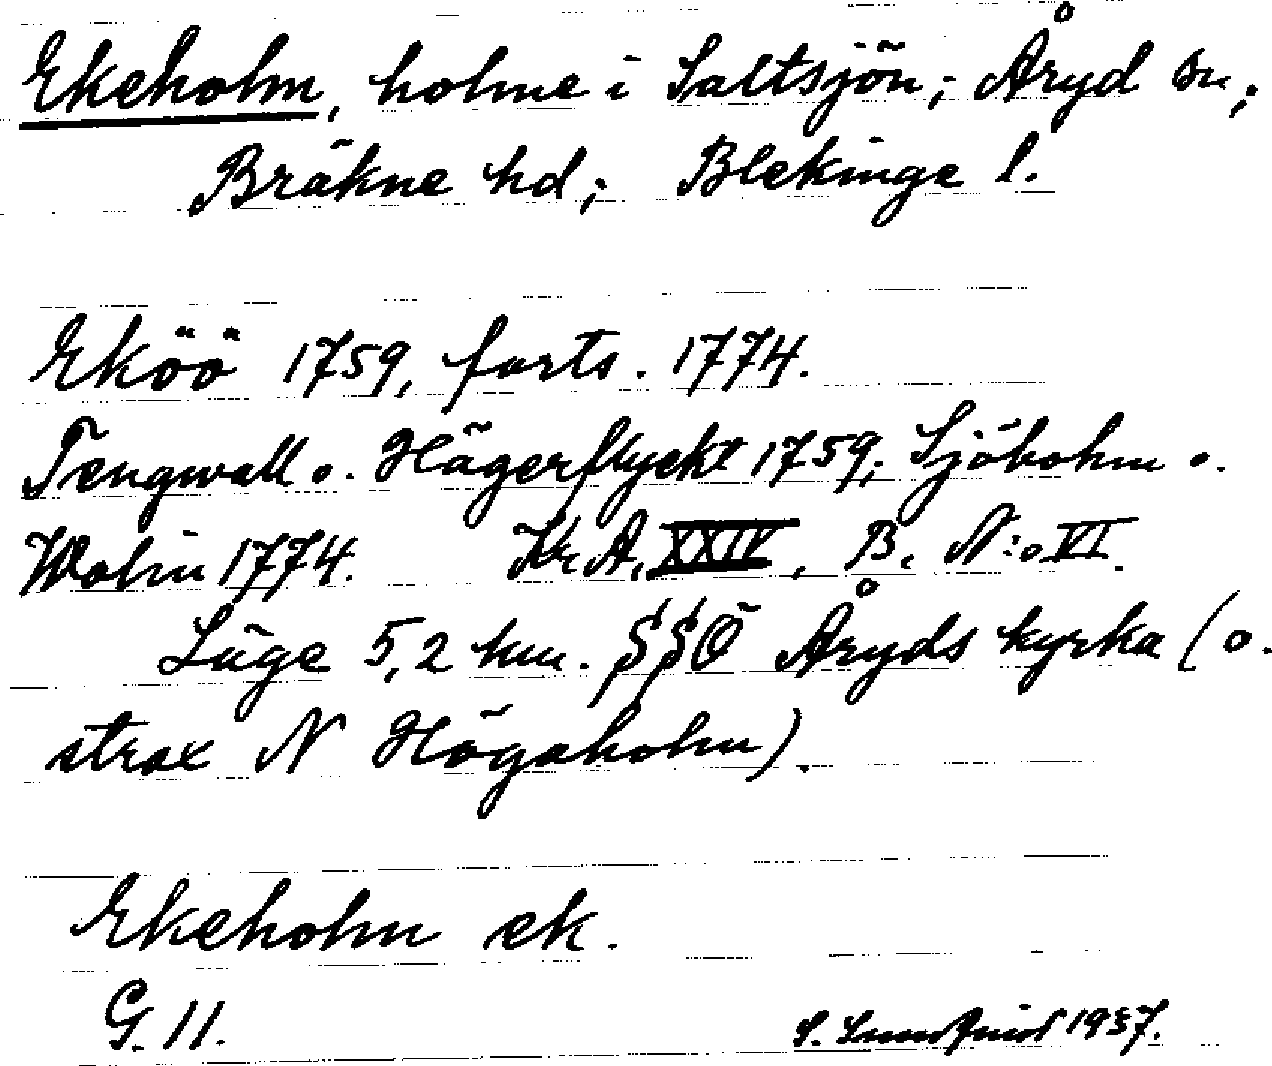 Ekeholm, holme i Saltsjön; Åryd sn;
Bräkne hd; Blekinge l.
Eköö 1759, forts. 1774.
Tengwall o. Hägerflyckt 1759; Sjöbohm o.
Wahlin 1774. Kr.A. XXIV, B. N:o VI.
Läge 5,2 km. SSÖ Åryds kyrka (o.
strax N Högaholm).
Ekeholm ek.
G. 11. S. Lundquist 1937.